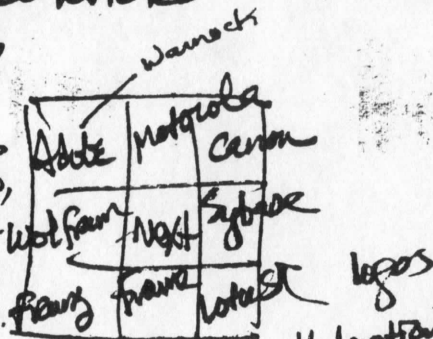 Warnock
Adobe Motorola Canon
Wolfram Next Sybase
Franz Frame Lotus
logos